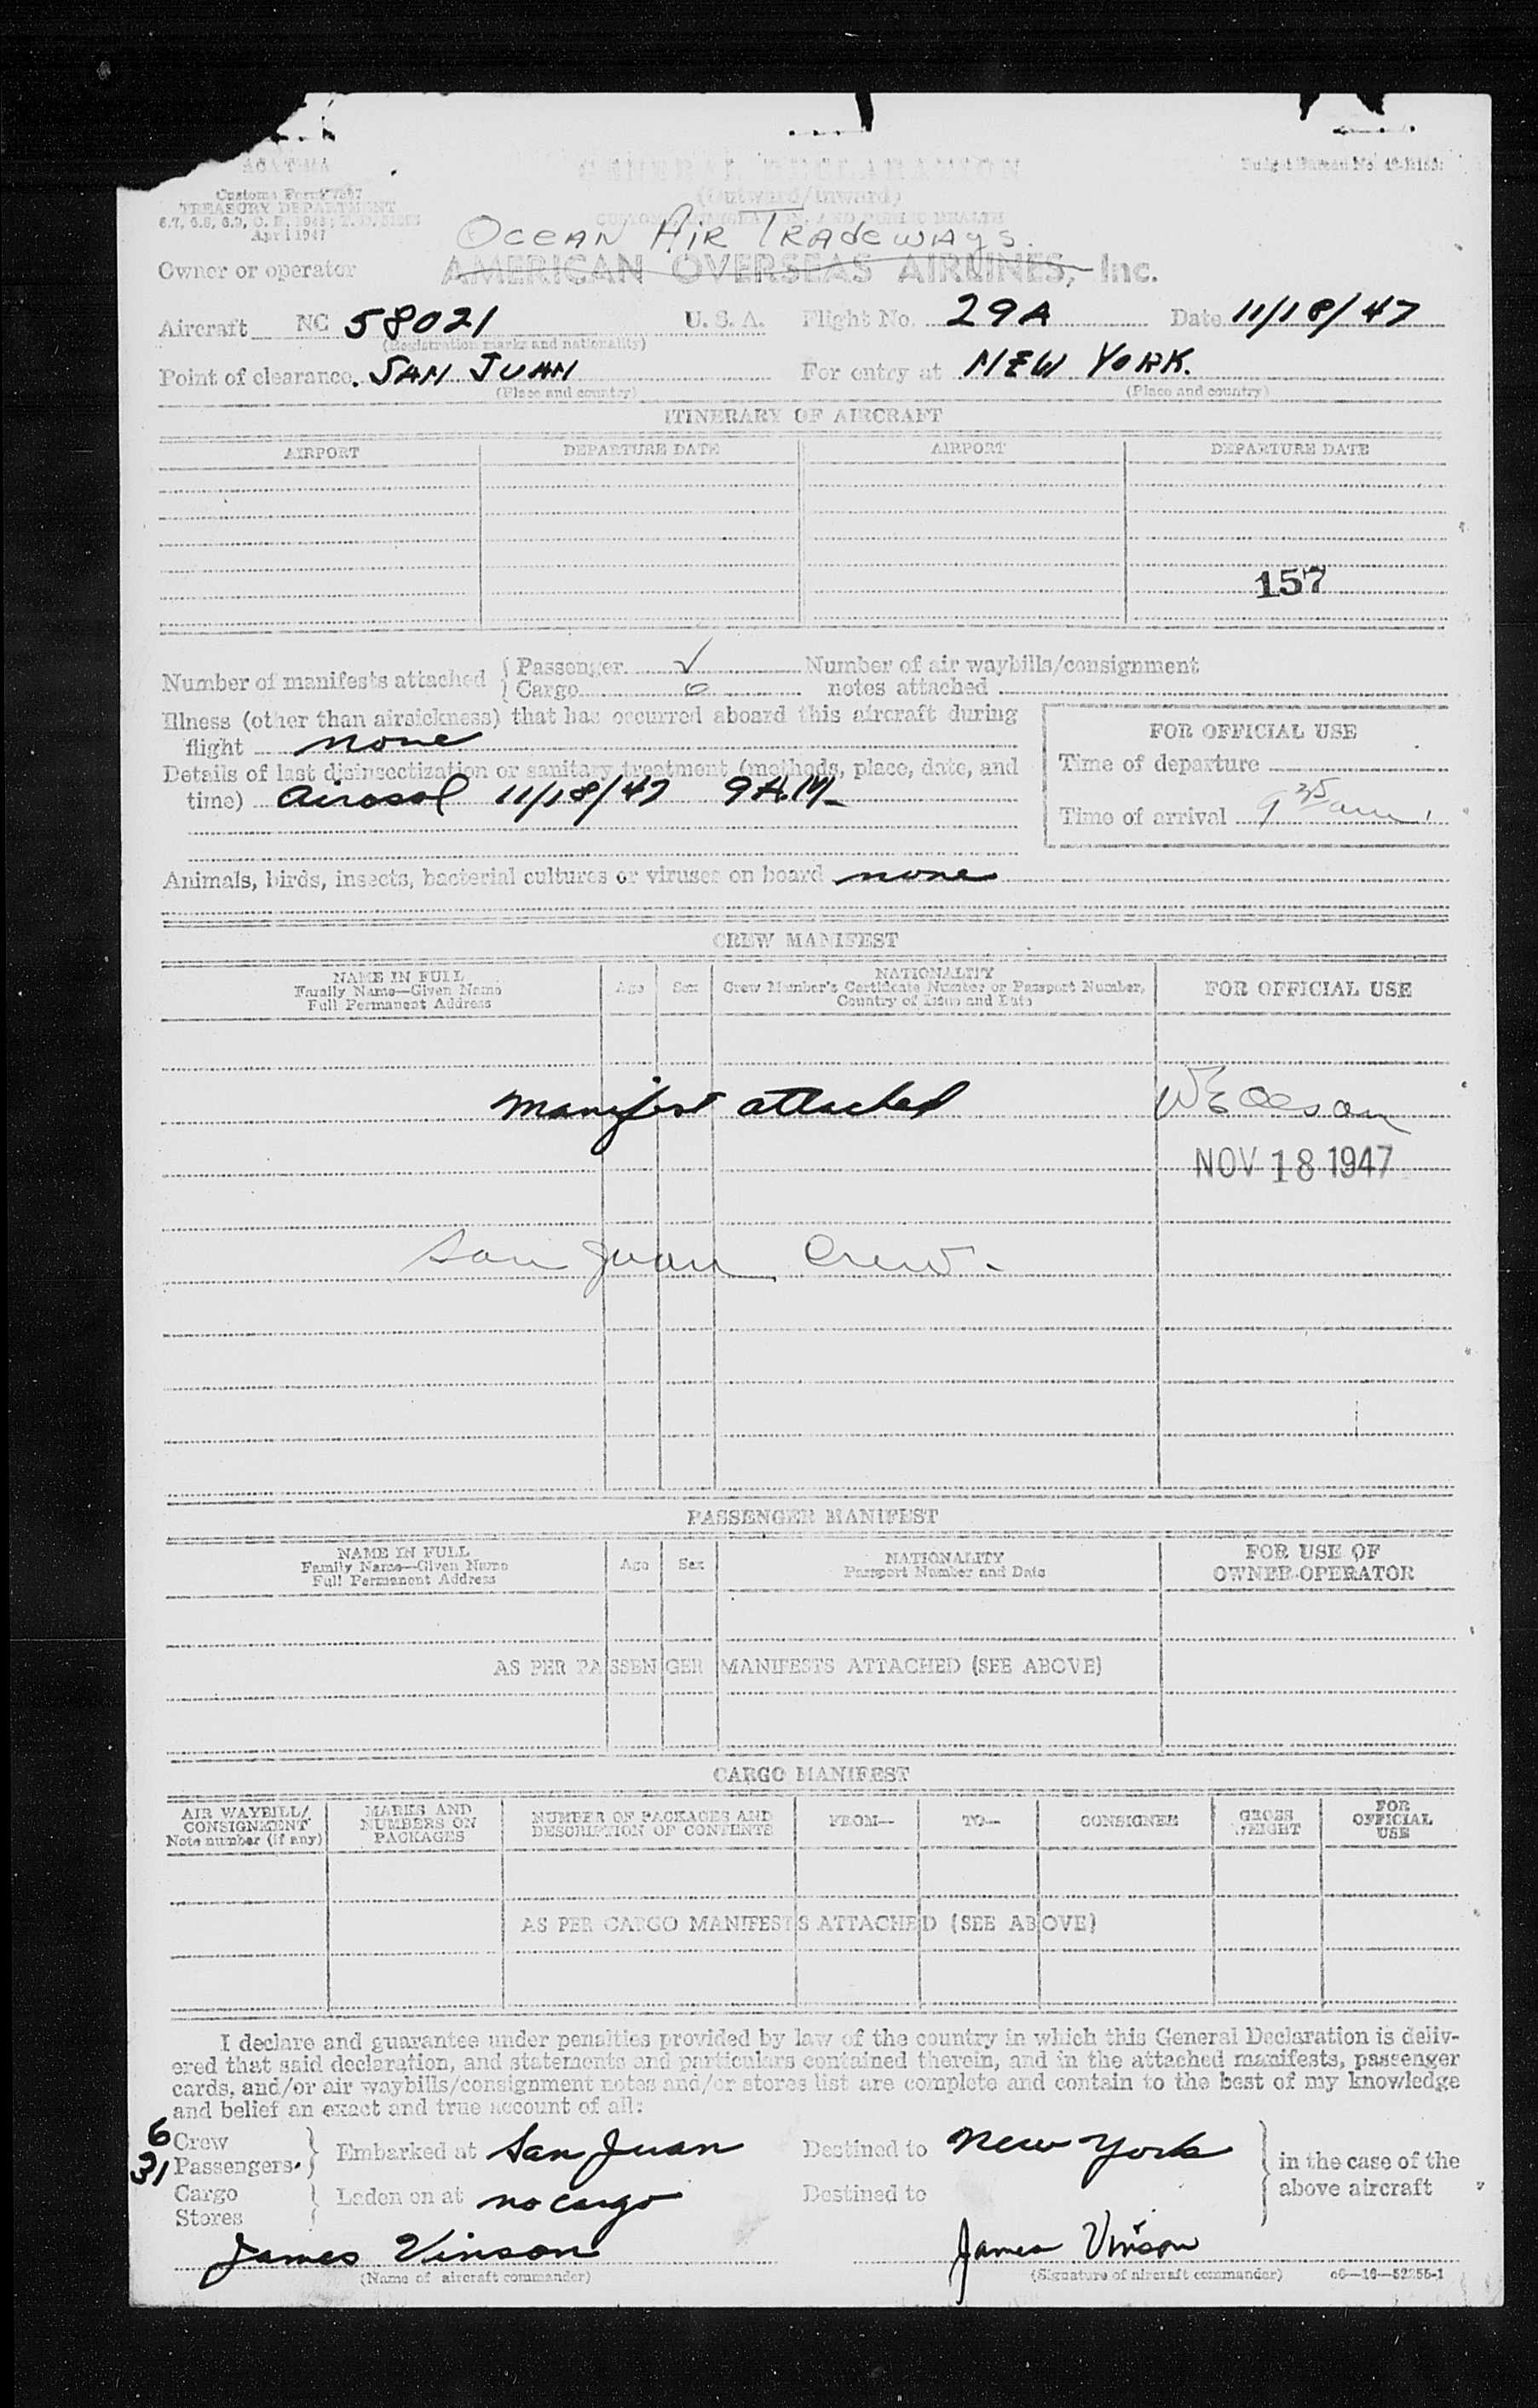 GENERAL DECLARATION
(Outward/Inward)
CUSTOMS, IMMIGRATION, AND PUBLIC HEALTH
Customs Form 7507
TREASURY DEPARTMENT
April 1947
Ocean Air Tradeways.
Owner or operator AMERICAN OVERSEAS AIRLINES, Inc.
Aircraft NC 58021 U. S. A. Flight No. 29A Date 11/18/47
(Registration marks and nationality)
Point of clearance SAN JUAN For entry at NEW YORK.
(Place and country) (Place and country)
ITINERARY OF AIRCRAFT
AIRPORT DEPARTURE DATE AIRPORT DEPARTURE DATE
157
Number of manifests attached { Passenger ✓ Number of air waybills/consignment
Cargo 0 notes attached
Illness (other than airsickness) that has occurred aboard this aircraft during
flight none
FOR OFFICIAL USE
Time of departure
Details of last disinsectization or sanitary treatment (methods, place, date, and
time) Airosol 11/18/47 9 A.M.
Time of arrival 9 35 am
Animals, birds, insects, bacterial cultures or viruses on board none
CREW MANIFEST
NAME IN FULL
Family Name—Given Name
Full Permanent Address
Age Sex
NATIONALITY
Crew Member's Certificate Number or Passport Number,
Country of Issue and Date
FOR OFFICIAL USE
Manifest attached
NOV 18 1947
San Juan Crew.
PASSENGER MANIFEST
NAME IN FULL
Family Name—Given Name
Full Permanent Address
Age Sex
NATIONALITY
Passport Number and Date
FOR USE OF
OWNER-OPERATOR
AS PER PASSENGER MANIFESTS ATTACHED (SEE ABOVE)
CARGO MANIFEST
AIR WAYBILL/
CONSIGNMENT
Note number (if any)
MARKS AND
NUMBERS ON
PACKAGES
NUMBER OF PACKAGES AND
DESCRIPTION OF CONTENTS
FROM— TO— CONSIGNEE
GROSS
WEIGHT
FOR
OFFICIAL
USE
AS PER CARGO MANIFESTS ATTACHED (SEE ABOVE)
I declare and guarantee under penalties provided by law of the country in which this General Declaration is deliv-
ered that said declaration, and statements and particulars contained therein, and in the attached manifests, passenger
cards, and/or air waybills/consignment notes and/or stores list are complete and contain to the best of my knowledge
and belief an exact and true account of all:
6 Crew
31 Passengers
Embarked at San Juan Destined to New York
in the case of the
above aircraft
Cargo
Stores
Laden on at no cargo Destined to
James Vinson James Vinson
(Name of aircraft commander) (Signature of aircraft commander)